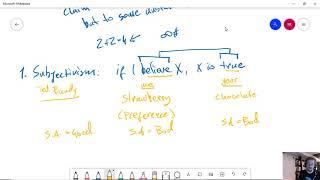 Microsoft Whiteboard
claim
but to some
2+2=4
1. Subjectivism: if I believe X, X is true
Ted Bundy
me
your
Strawberry
chocolate
(Preference)
S.A. = Good
S.A = Bad
S.A = Bad